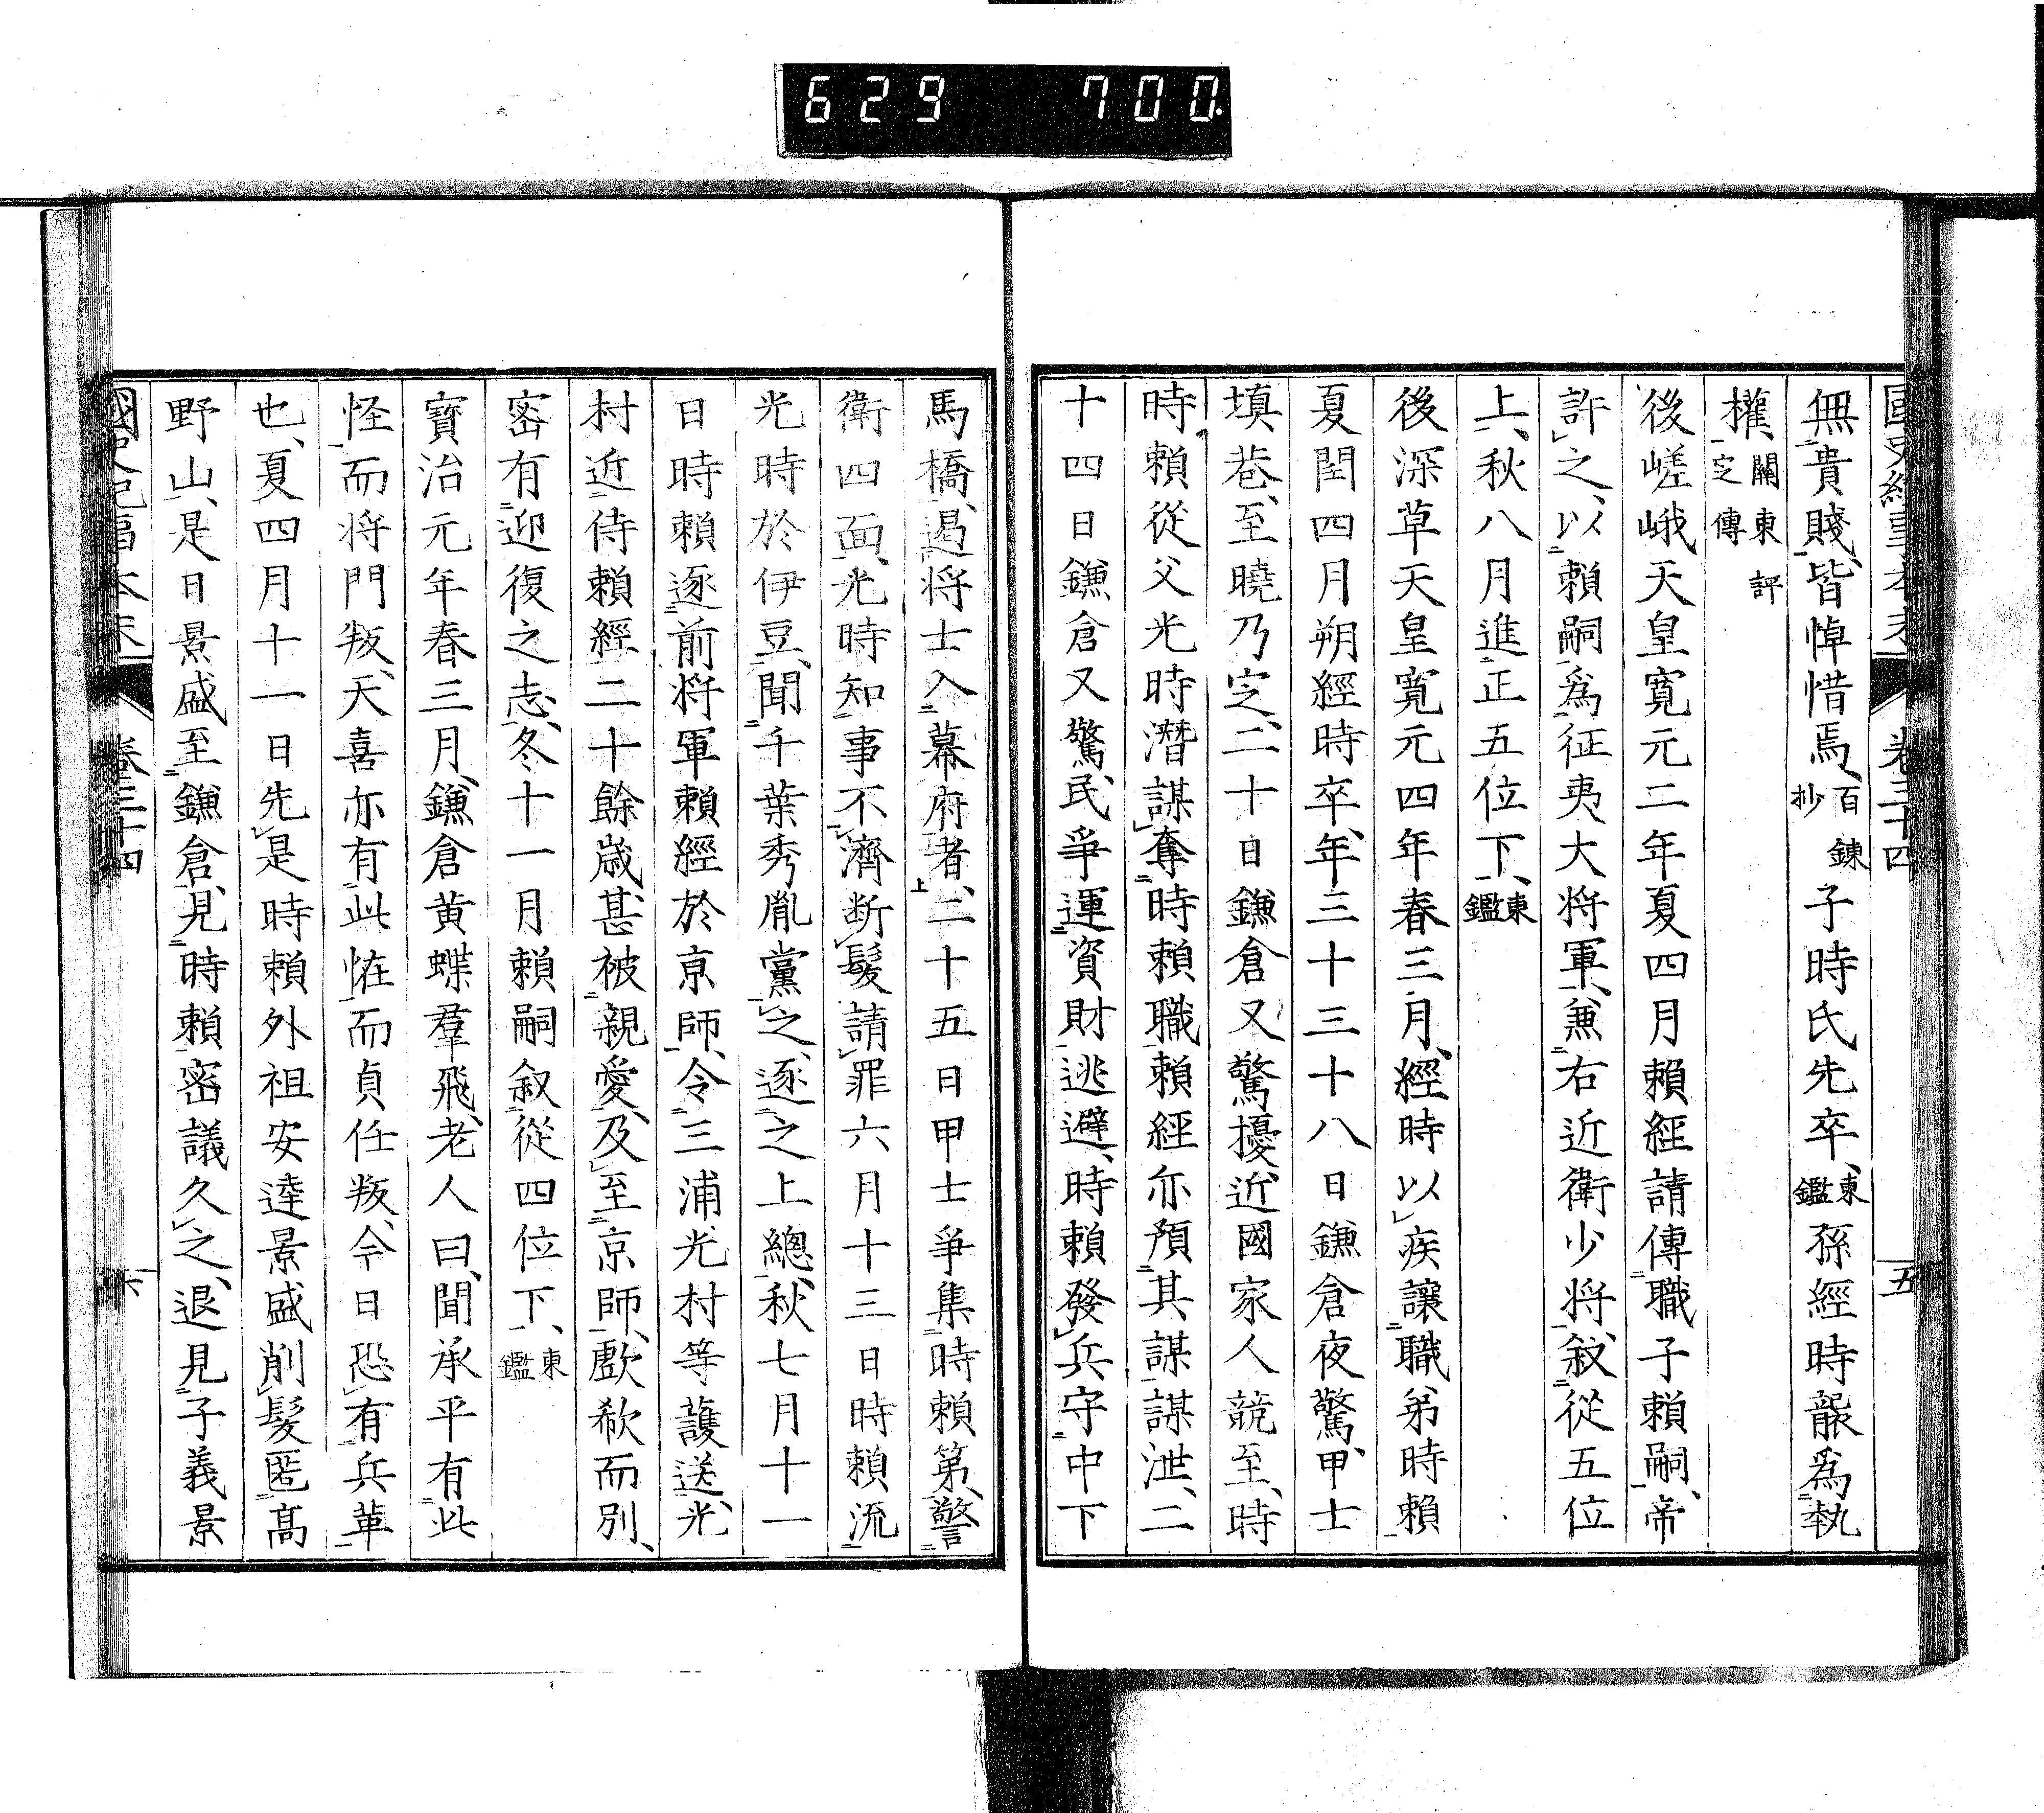 629 700
無貴賤、皆悼惜焉、百鍊抄子時氏先卒、東鑑孫經時襲爲執
權、關東評定傳
後嵯峨天皇寬元二年夏四月賴經請傳職子賴嗣、帝
許之、以賴嗣爲征夷大将軍、兼右近衛少将、叙從五位
上、秋八月進正五位下、東鑑
後深草天皇寬元四年春三月、經時以疾讓職弟時賴
夏閏四月朔經時卒、年三十三十八日鎌倉夜驚、甲士
填巷、至曉乃定、二十日鎌倉又驚擾、近國家人競至、時
時賴從父光時潛謀奪時賴職、賴經亦預其謀、謀泄、二
十四日鎌倉又驚、民爭運資財逃避、時賴發兵守中下
馬橋、遏将士入幕府者、二十五日甲士爭集時賴第、警
衛四面、光時知事不濟、断髮請罪六月十三日時賴流
光時於伊豆、聞千葉秀胤黨之、逐之上總、秋七月十一
日時賴逐前将軍賴經於京師、令三浦光村等護送、光
村近侍賴經二十餘歳、甚被親愛、及至京師、歔欷而別、
密有迎復之志、冬十一月賴嗣叙從四位下、東鑑
寶治元年春三月、鎌倉黄蝶羣飛、老人曰、聞承平有此
怪、而将門叛、天喜亦有此怪、而貞任叛、今日恐有兵革
也、夏四月十一日先是時賴外祖安達景盛削髮匿高
野山、是日景盛至鎌倉、見時賴密議久之、退見子義景
卷三十四
六
卷三十四
五